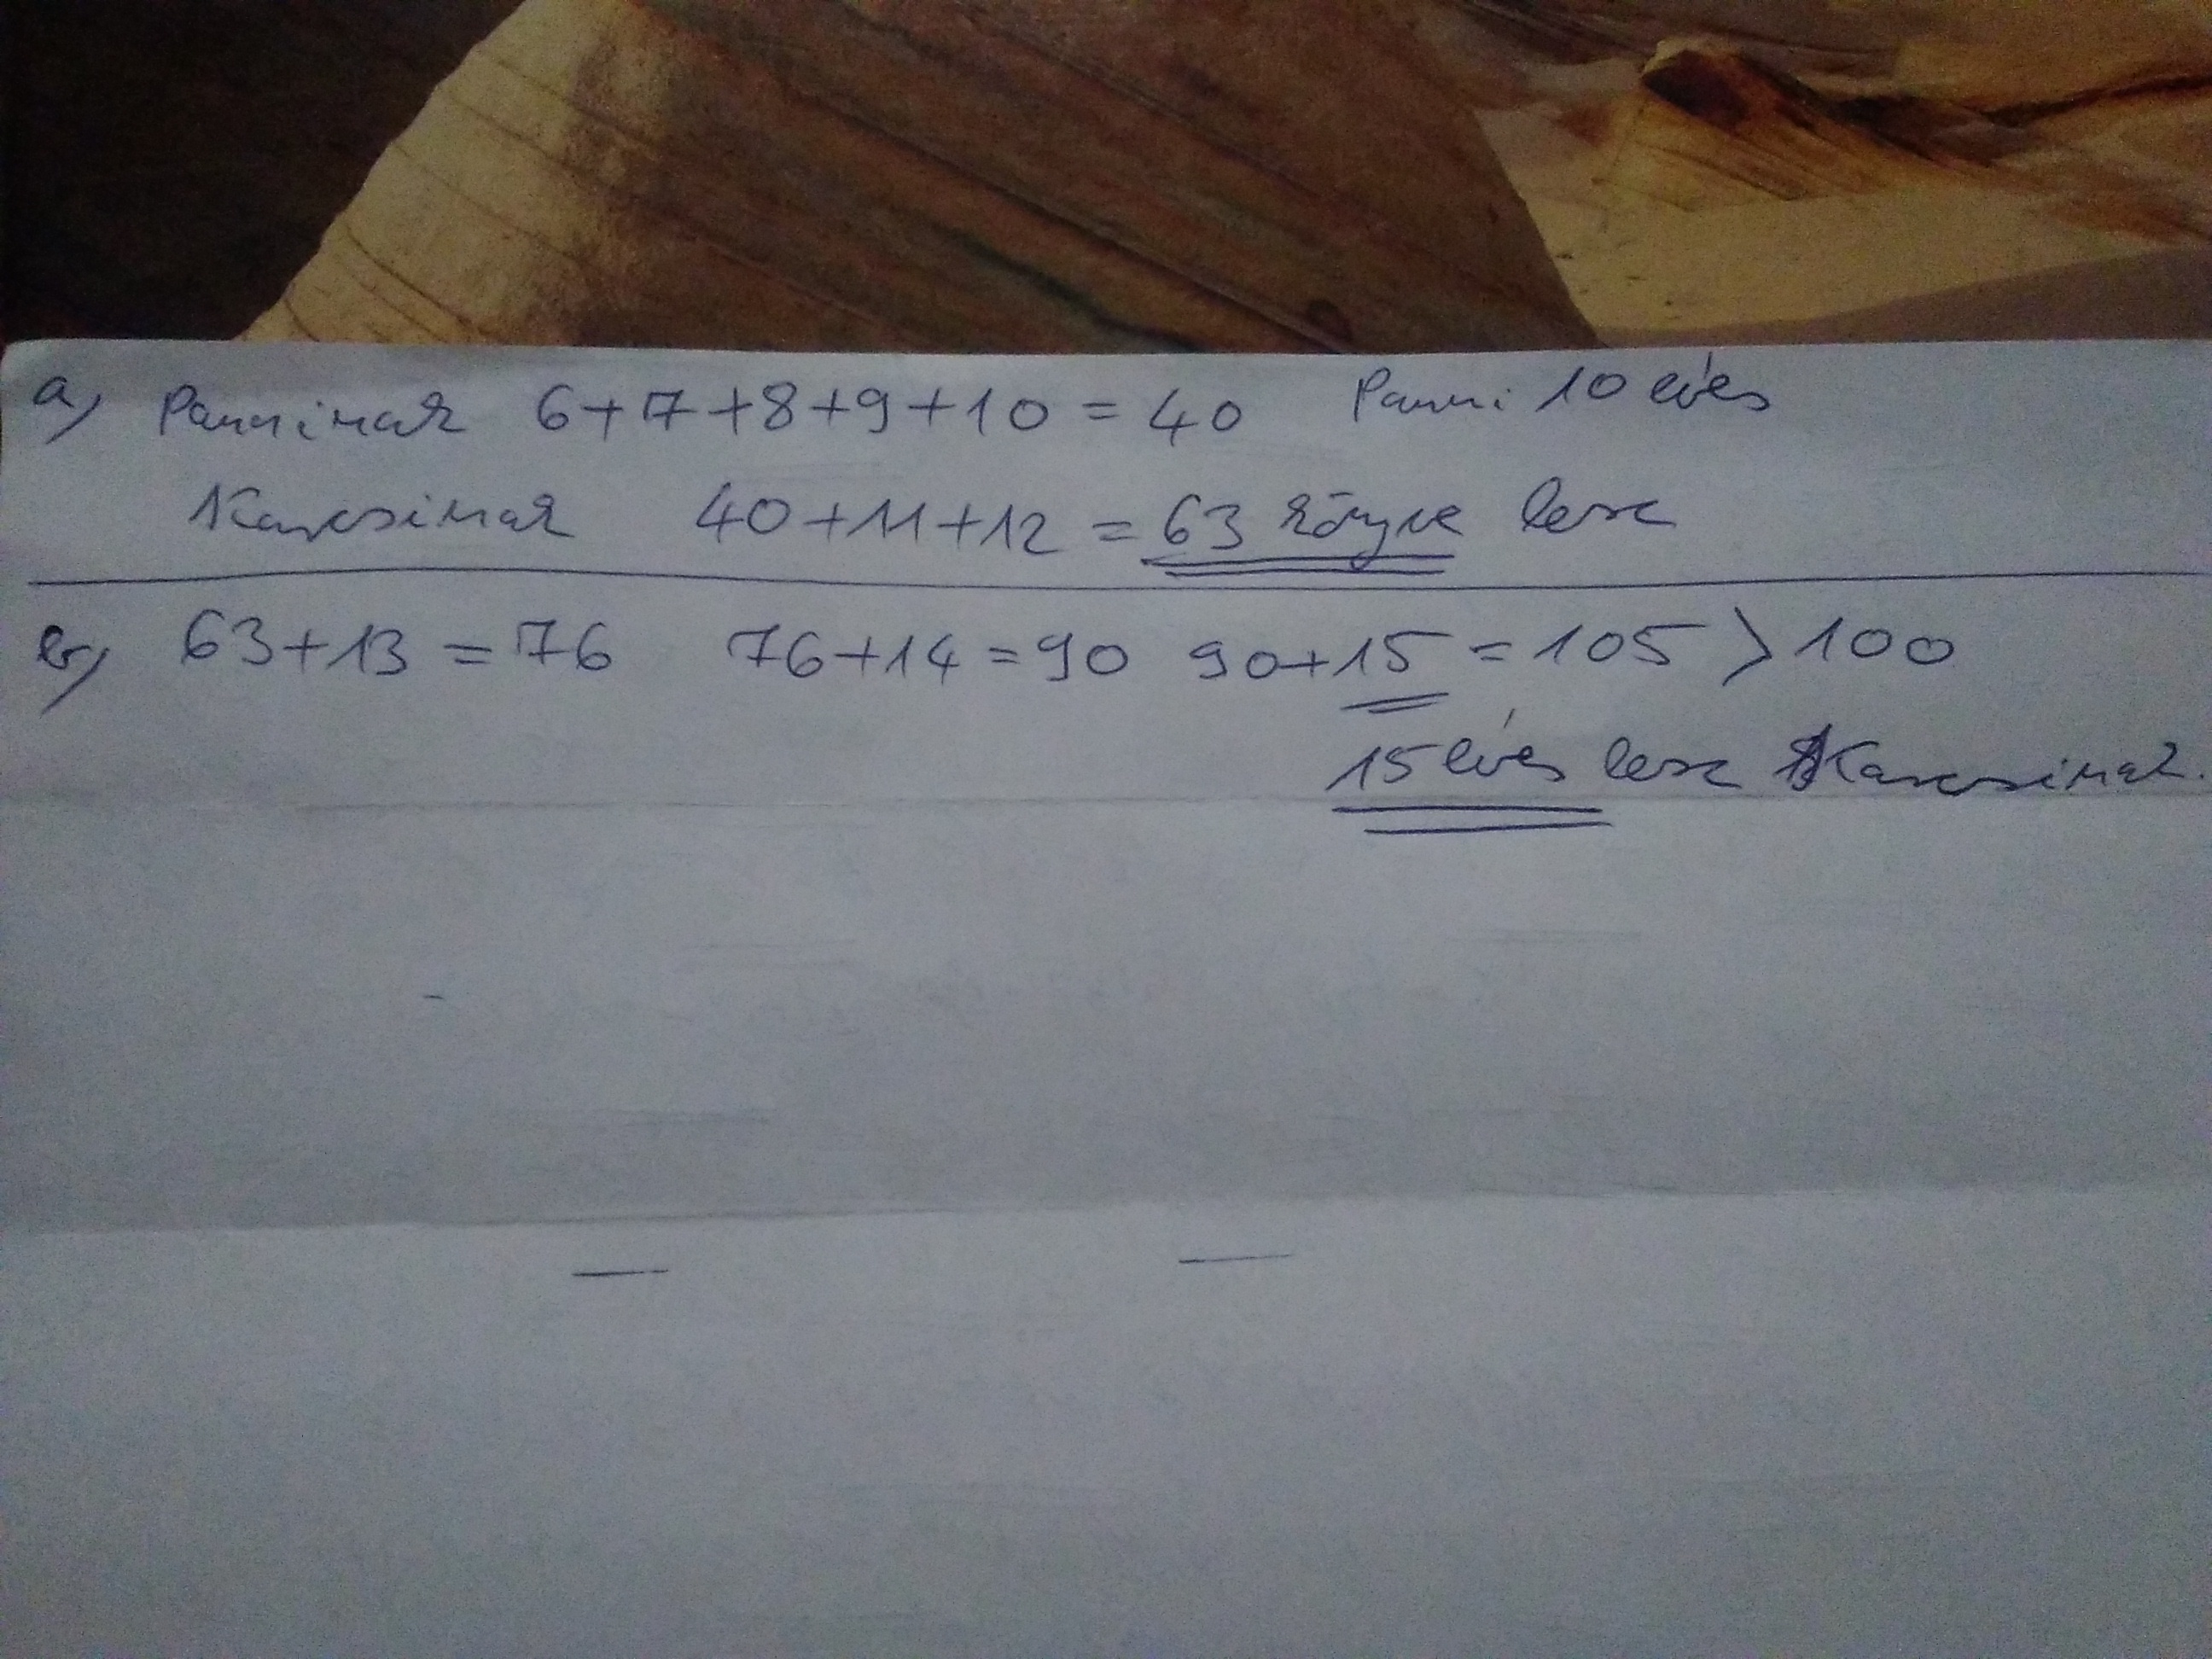 a) Panninak 6+7+8+9+10 = 40 Panni 10 éves
Karcsinak 40+11+12 = 63 könyve lesz
b) 63+13 = 76 76+14 = 90 90+15 = 105 > 100
15 éves lesz Karcsinak.